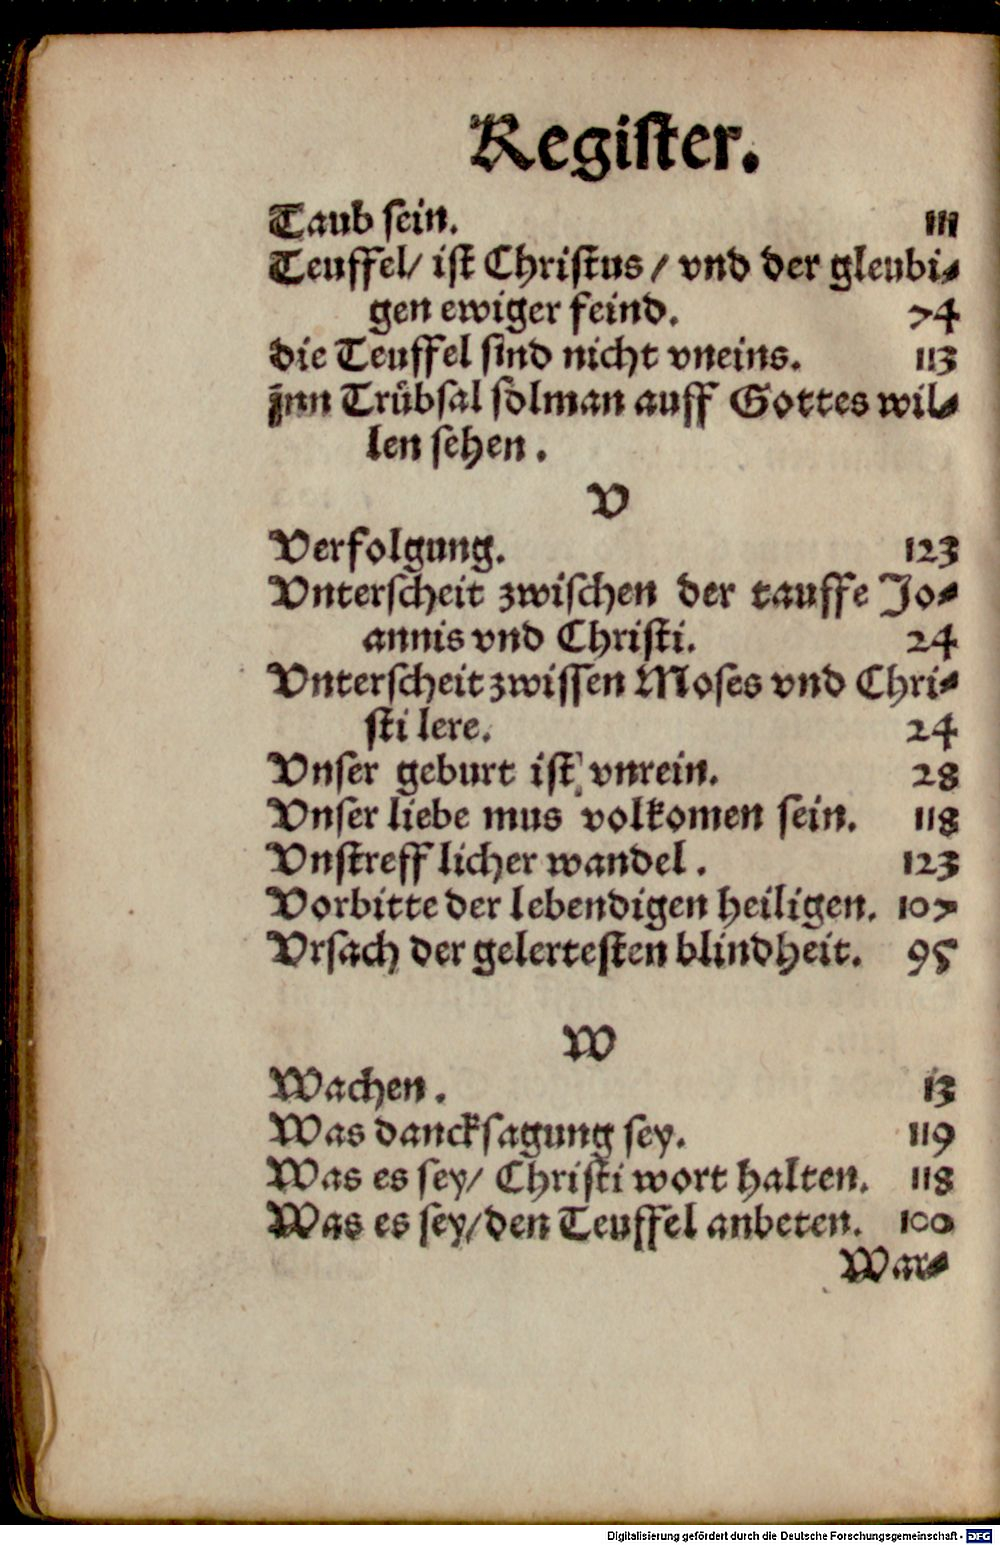 Register.
Taub sein. 111
Teuffel/ ist Christus / vnd der gleubi-
gen ewiger feind. 74
die Teuffel sind nicht vneins. 113
jnn Trübsal solman auff Gottes wil-
len sehen.
V
Verfolgung. 123
Vnterscheit zwischen der tauffe Jo-
annis vnd Christi. 24
Vnterscheit zwissen Moses vnd Chri-
sti lere. 24
Vnser geburt ist vnrein. 28
Vnser liebe mus volkomen sein. 118
Vnstrefflicher wandel. 123
Vorbitte der lebendigen heiligen. 107
Vrsach der gelertesten blindheit. 95
W
Wachen. 13
Was dancksagung sey. 119
Was es sey/ Christi wort halten. 118
Was es sey/den Teuffel anbeten. 100
War-
Digitalisierung gefördert durch die Deutsche Forschungsgemeinschaft - DFG